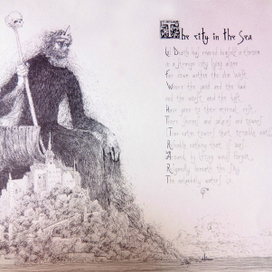 The City in the Sea
Lo Death has reared himself a throne
In a strange city lying alone
Far down within the dim West
Where the good and the bad
and the worst and the best
Have gone to their eternal rest
There shrines and palaces and towers
Time-eaten towers that tremble not
Resemble nothing that is ours
Around by lifting winds forgot
Resignedly beneath the sky
The melancholy waters lie